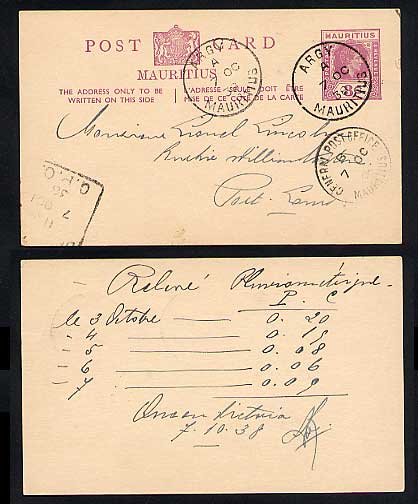 POST CARD
MAURITIUS
MAURITIUS
THE ADDRESS ONLY TO BE
WRITTEN ON THIS SIDE
ADRESSE SEULE DOIT ÊTRE
MISE DE CE CÔTÉ DE LA CARTE
ARGY
A
7 OC
38
MAURITIUS
ARGY
A
7 OC
38
MAURITIUS
Monsieur Lionel Lincoln
Port Louis
GENERAL POST OFFICE
7 OC
MAURITIUS
G.P.O.
38
OCT
7
Relevé Pluviométrique
P. C
le 3 Octobre 0. 20
4 0. 15
5 0. 08
6 0. 06
7 0. 0 9
7. 10. 38